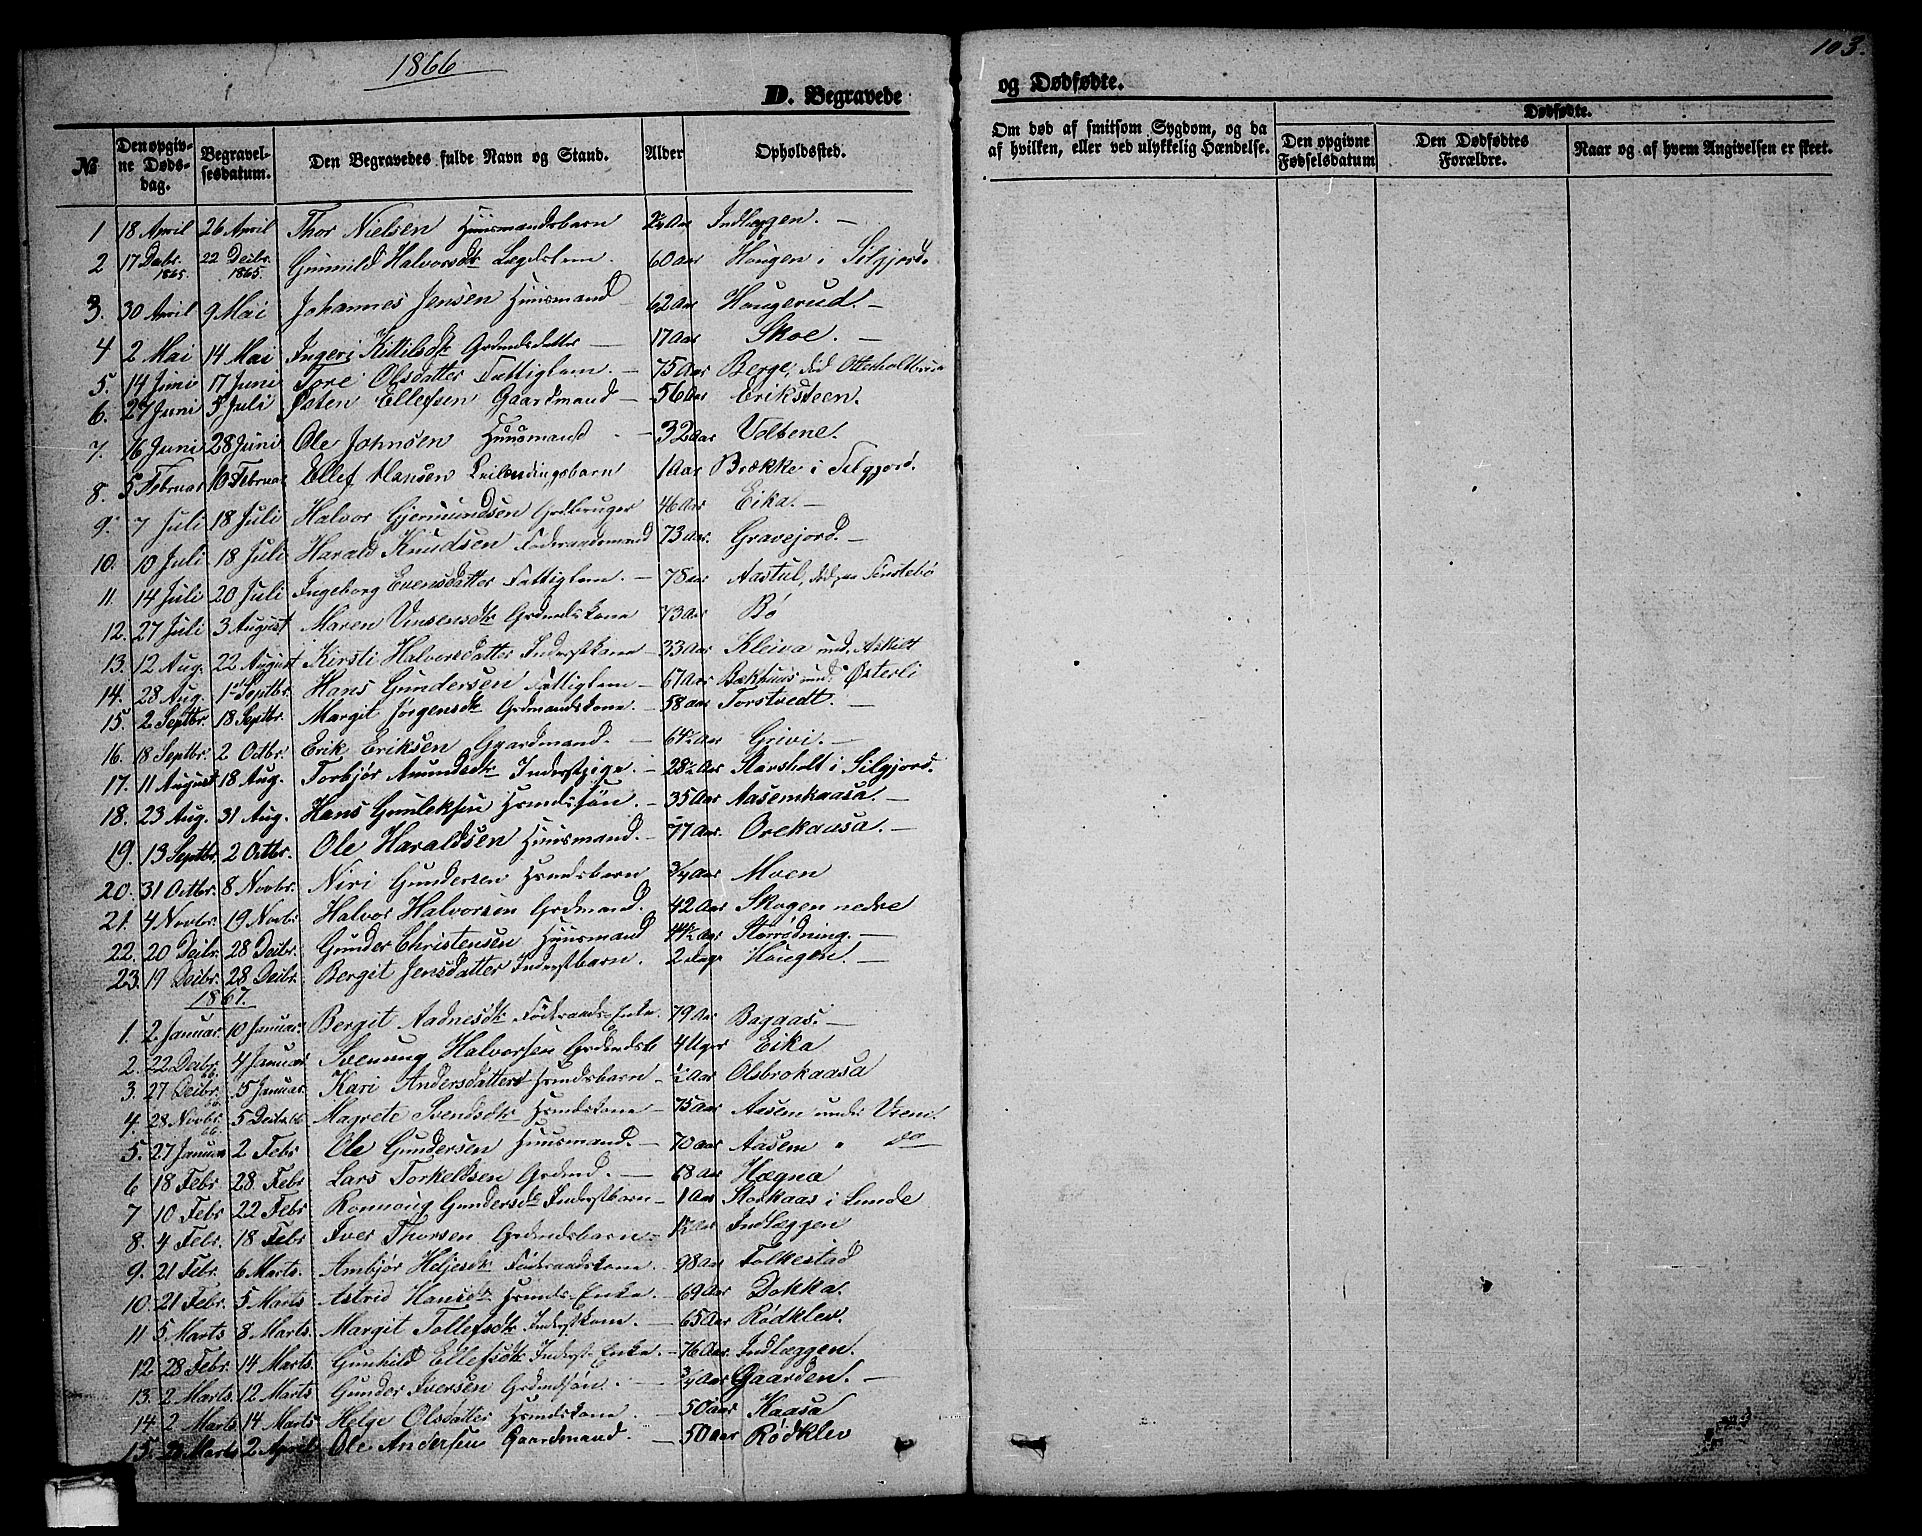 1866
103.
D. Begravede
og Dødfødte.
№ Den opgivne Dødsdag. Begravelsesdatum. Den Begravedes fulde Navn og Stand. Alder Opholdssted.
Om død af smitsom Sygdom, og da af hvilken, eller ved ulykkelig Hændelse. Dødfødte. Den opgivne Fødselsdatum Den Dødfødtes Forældre. Naar og af hvem Angivelsen er skeet.
1 18 April 26 April Thor Nielsen Huusmandsbarn 2½ Aar Indlæggen. —
2 17 Decbr. 1865. 22 Decbr. 1865. Gunnild Halvorsdtr Lægdslem. 60 Aar Haugen i Silgjord.
3. 30 April 9 Mai Johannes Jensen Huusmand 62 Aar Haugerud. —
4 2 Mai 14 Mai Ingeri Kittilsdtr Grdmdsdatter — 17 Aar Skoe. —
5. 14 Juni 17 Juni Tore Olsdatter Fattiglem. — 75 Aar Berge, død
6. 27 Juni 5 Juli Østen Ellefsen Gaardmand — 56 Aar Eriksteen.
7. 16 Juni 28 Juni Ole Johnsen Huusmand — 32 Aar Valbene.
8. 5 Februar 10 Februar Ellef Hansen Leilændingsbarn 1 Aar Brække i Silgjord.
9. 7 Juli 18 Juli Halvor Gjermundsen Grdbruger 46 Aar Eika. —
10. 10 Juli 18 Juli Harald Knudsen Føderaadsmand 73 Aar. Gravejord. —
11. 14 Juli 20 Juli Ingeborg Evensdatter Fattiglem. — 78 Aar Aastul, død paa Fenstebø
12. 27 Juli 3 August Maren Vinsensdtr Grdmdskone 73 Aar Bø
13. 12 Aug. 22 August Kirsti Halvorsdatter Inderstkone — 33 Aar Kleiva und. Askilt
14. 28 Aug. 1st Septbr. Hans Gundersen Fattiglem — 67 Aar Bækhuus und. Østerli
15. 2 Septbr. 18 Septbr. Margit Jørgensdtr Grdmandskone. — 58 Aar Torstvedt. —
16. 18 Septbr. 2 Octbr. Erik Eriksen Gaardmand. — 64½ Aar Grivi. —
17. 11 August 18 Aug. Torbjør Amundsdtr Inderstpige. — 28½ Aar Starsholt i Silgjord.
18. 23 Aug. 31 Aug. Hans Gunleksen Hsmdssøn. — 35 Aar Aasemkaasa. —
19. 13 Septbr. 2 Octbr. Ole Haraldsen Huusmand. — 77 Aar. Orekaasa. —
20. 31 Octbr. 8 Novbr. Niri Gundersen Hsmdsbarn ¾ Aar Moen
21. 4 Novbr. 19 Novbr Halvor Halvorsen Grdmand. 42 Aar Skogen nedre
22. 20 Decbr. 28 Decbr. Gunder Christensen Huusmand 44½ Aar Størrødning. —
23. 19 Decbr. 28 Decbr. Bergit Jensdatter Inderstbarn. 2 Dage Haugen. —
1867.
1. 2 Januar. 10 Januar. Bergit Aadnesdtr Føderaads-Enke. 79 Aar Bagaas. —
2. 22 Decbr. 66. 4 Januar Svenung Halvorsen Grdmdsb 4 Uger Eika
3. 27 Decbr. 66. 5 Januar. Kari Andersdatter Hsmdsbarn — ½ Aar Olsbrokaasa
4. 28 Novbr. 66. 5 Decbr. 66 Magrete Svendsdtr Hsmdskone — 75 Aar Aasem under Vreim.
5. 27 Januar 2 Febr Ole Gundersen Huusmand. — 70 Aar Aasem " do
6 18 Febr. 28 Febr Lars Torkeldsen Grdmd. — 68 Aar Hægna
7 10 Febr 22 Febr Ronnoug Gundersdtr Inderstbarn — 1 Aar Storkaas i Lunde
8. 4 Febr. 18 Febr Iver Thorsen Grdmdsbarn — 1½ Aar Indlæggen
9. 21 Febr. 6 Marts. Ambjør Heljesdtr Føderaadskone. — 98 Aar Folkestad
10. 21 Febr. 5 Marts Astrid Hansdtr Hsmds-Enke. — 69 Aar Dokka.
11 5 Marts 8 Marts. Margit Tollefsdtr Inderstkone. — 65 Aar Rødklev.
12. 28 Febr. 14 Marts. Gunhild Ellefsdtr Inderst-Enke. — 76 Aar. Indlæggen.
13. 2 Marts. 12 Marts Gunder Iversen Grdmdsøn. — ¾ Aar Gaarden. —
14. 2 Marts 14 Marts Helge Olsdatter Hsmdskone. — 50 Aar Kaasa
15. Marts 2 April Ole Andersen Gaardmand. — 50 Aar Rødklev